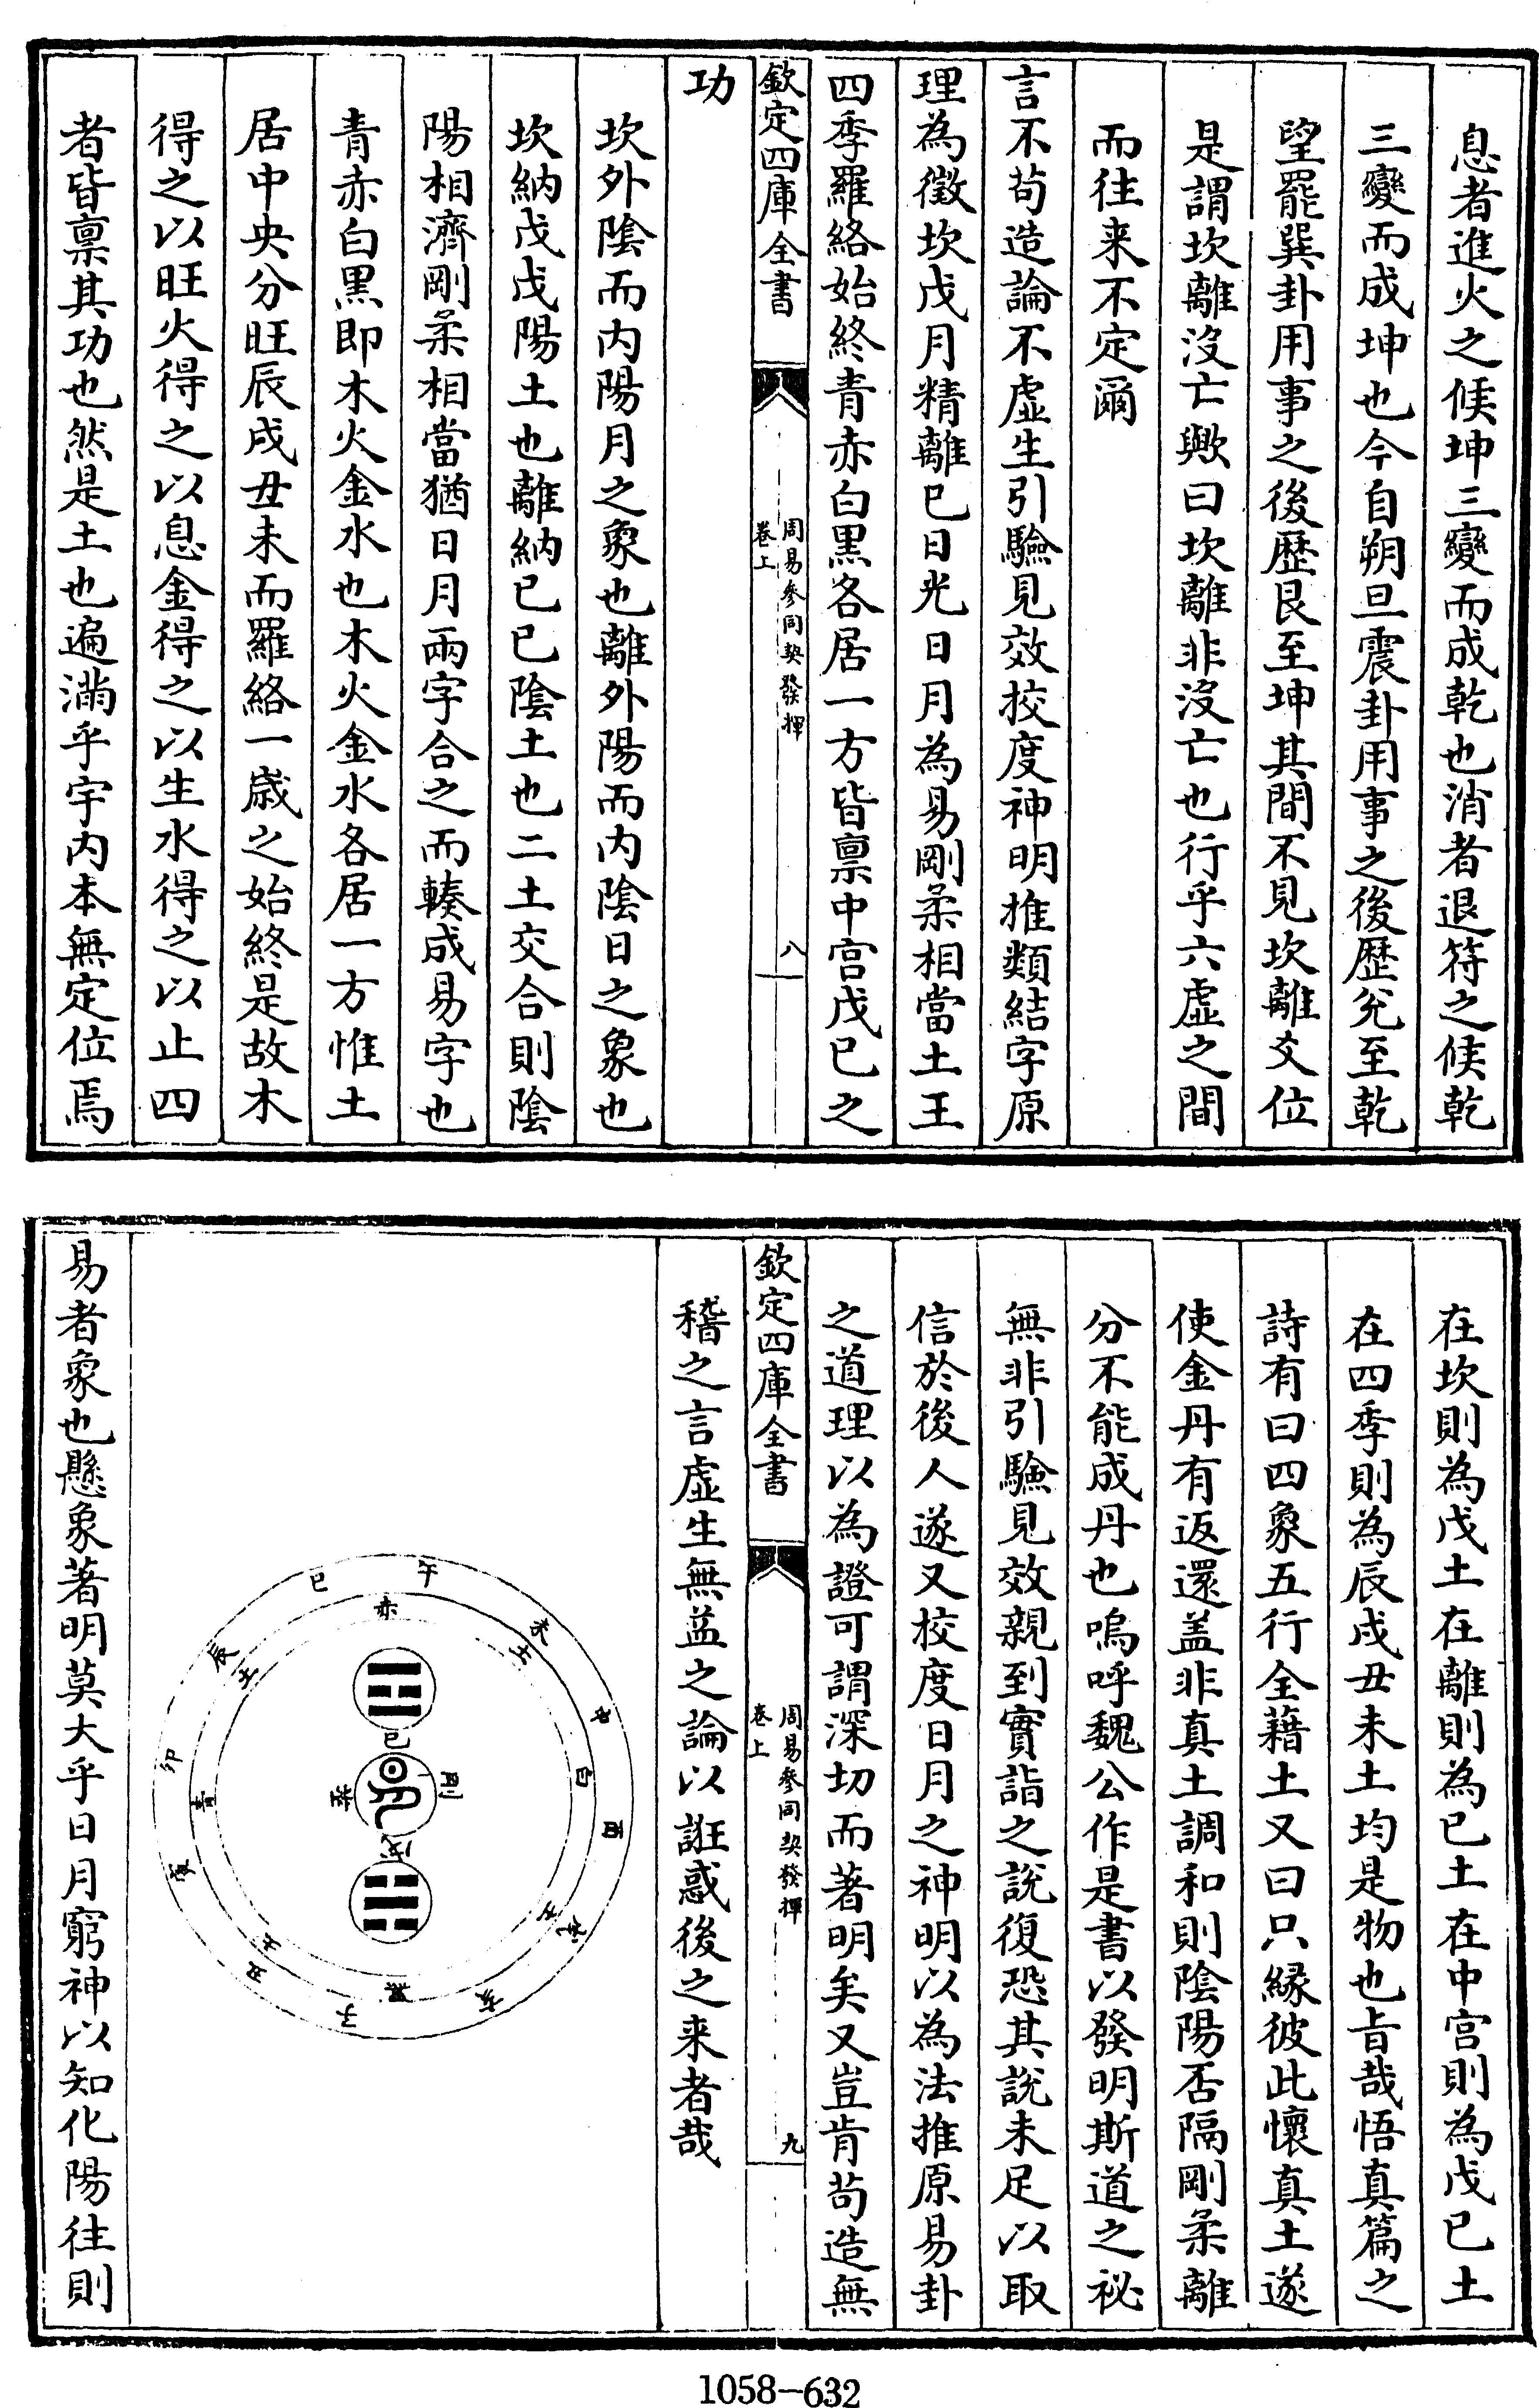 息者進火之候坤三變而成乾也消者退符之候乾
三變而成坤也今自朔旦震卦用事之後歷兌至乾
望罷巽卦用事之後歷艮至坤其間不見坎離爻位
是謂坎離沒亡歟曰坎離非沒亡也行乎六虛之間
而往来不定爾
言不苟造論不虛生引驗見效校度神明推類結字原
理為徵坎戊月精離已日光日月為易剛柔相當土王
四季羅絡始終青赤白黒各居一方皆禀中宮戊已之
欽定四庫全書
周易參同契發揮
卷上
八
功
坎外陰而内陽月之象也離外陽而内陰日之象也
坎納戊戊陽土也離納已已陰土也二土交合則陰
陽相濟剛柔相當猶日月兩字合之而輳成易字也
青赤白黒即木火金水也木火金水各居一方惟土
居中央分旺辰戌丑未而羅絡一歳之始終是故木
得之以旺火得之以息金得之以生水得之以止四
者皆禀其功也然是土也遍滿乎宇内本無定位焉
在坎則為戊土在離則為已土在中宫則為戊已土
在四季則為辰戌丑未土均是物也旨哉悟真篇之
詩有曰四象五行全藉土又曰只縁彼此懷真土遂
使金丹有返還盖非真土調和則陰陽否隔剛柔離
分不能成丹也嗚呼魏公作是書以發明斯道之祕
無非引驗見效親到實詣之說復恐其説未足以取
信於後人遂又校度日月之神明以為法推原易卦
之道理以為證可謂深切而著明矣又豈肯苟造無
欽定四庫全書
周易參同契發揮
卷上
九
稽之言虛生無益之論以誑惑後之来者哉
巳
午
未
土
申
白
酉
戌
土
亥
黒
子
丑
土
寅
青
卯
辰
土
赤
已
剛
柔
戊
易者象也懸象著明莫大乎日月窮神以知化陽往則
1058-632